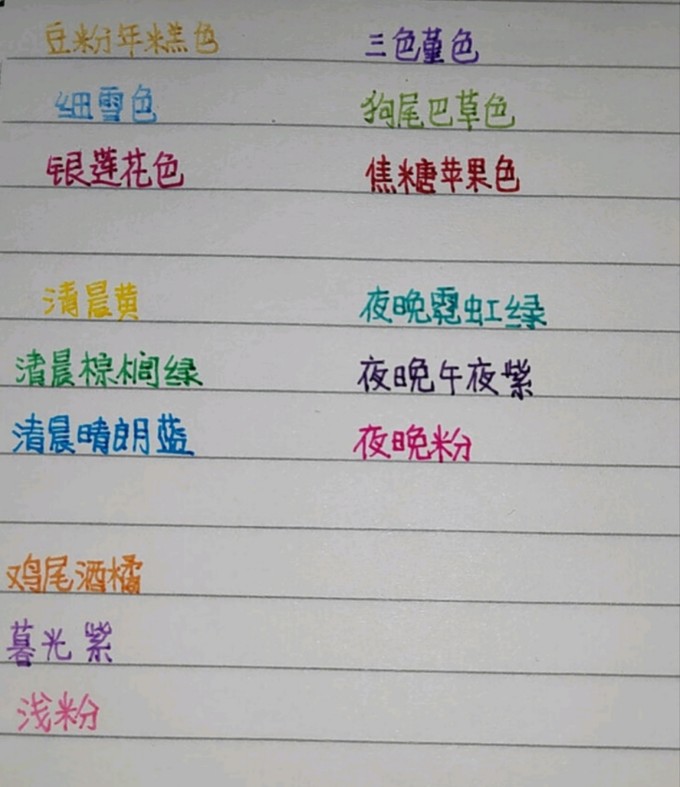 豆粉年糕色 三色堇色
细雪色 狗尾巴草色
银莲花色 焦糖苹果色
清晨黄 夜晚霓虹绿
清晨棕榈绿 夜晚午夜紫
清晨晴朗蓝 夜晚粉
鸡尾酒橘
暮光紫
浅粉